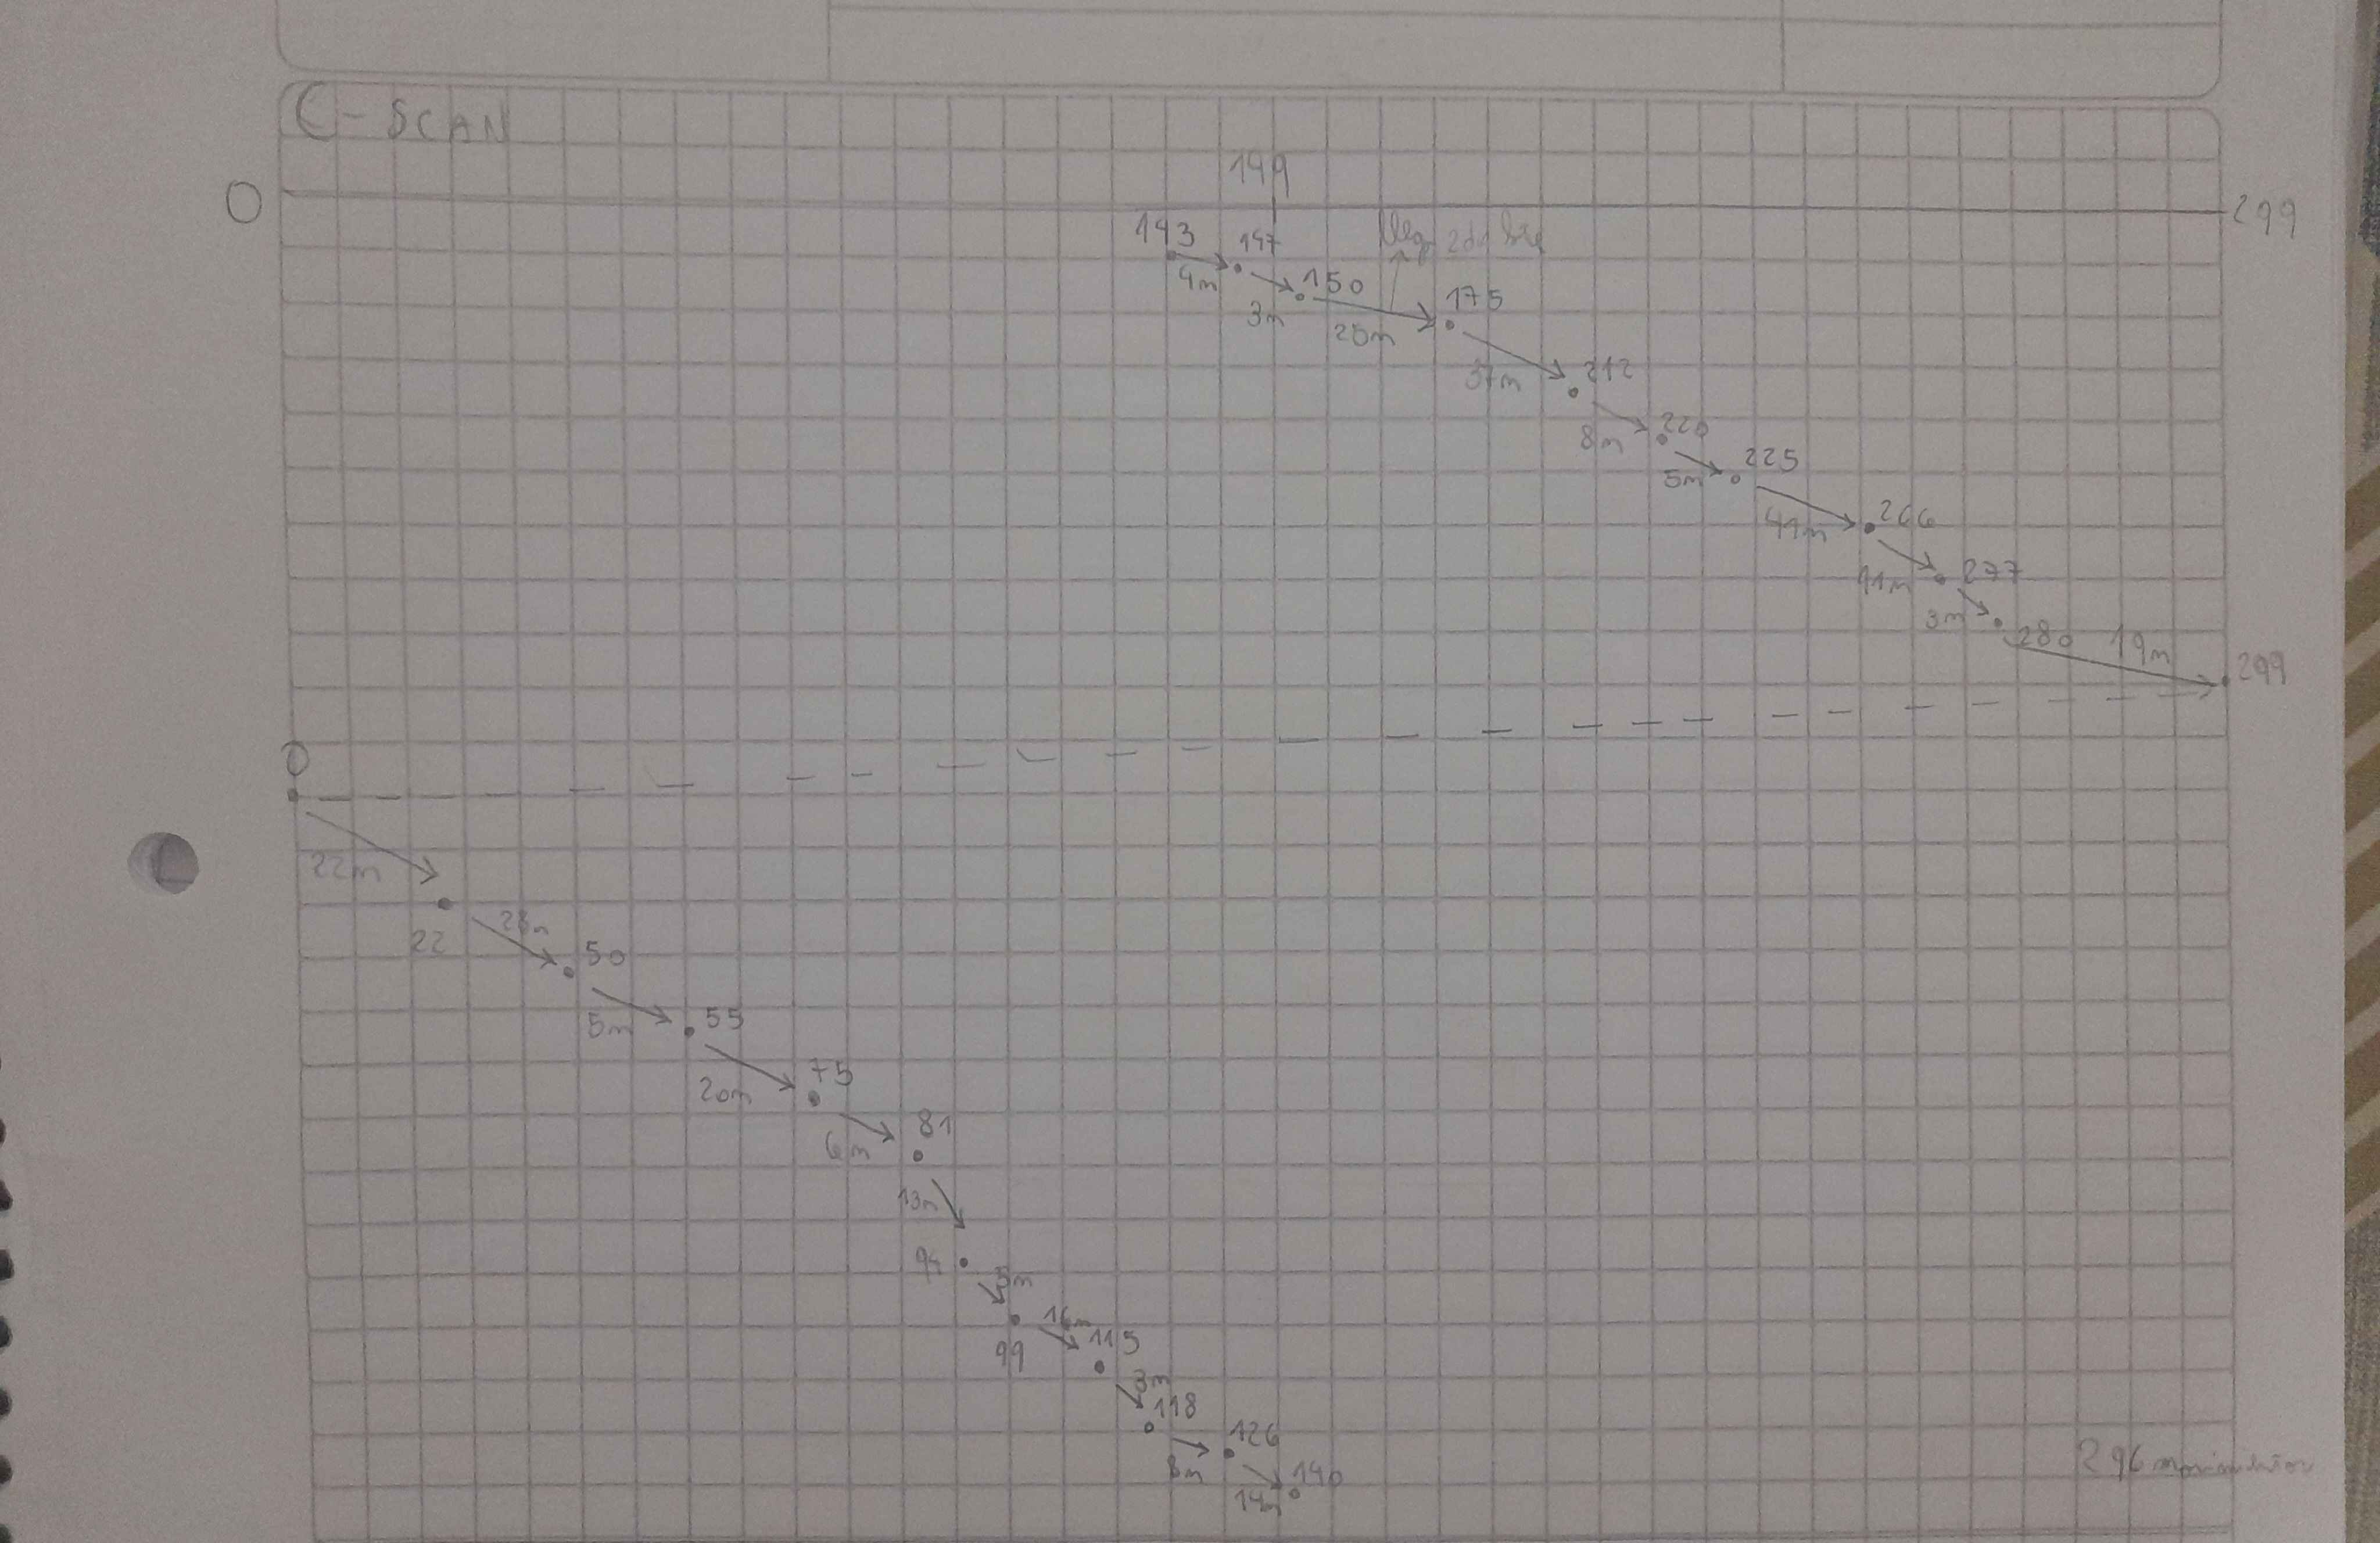 C-SCAN
149
0 299
143 147
4m 150 175
3m 25m
37m 212
8m 220
5m 225
41m 266
11m 277
3m 280 19m 299
0
22m
22 28m 50
5m 55
20m 75
6m 81
13m
94 5m
99 16m 115
3m 118
8m 126
14m 140
296 movimientos